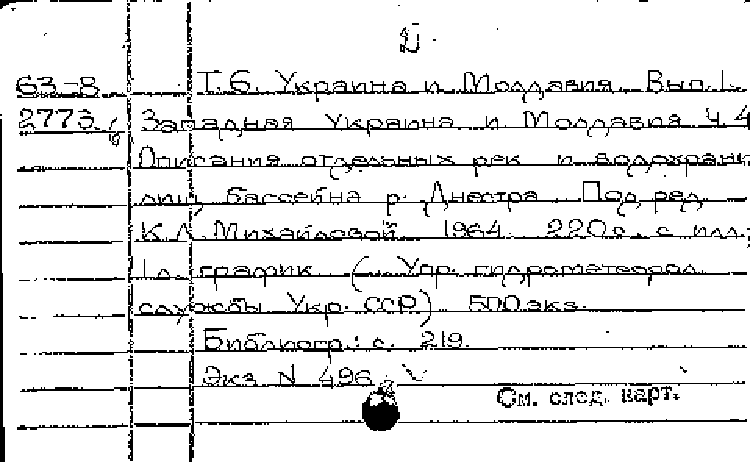 63-8 Т.6. Украина и Молдавия. Вып.1.
2773 Западная Украина и Молдавия Ч.4
Описания отдельных рек и водохрани
лищ бассейна р. Днестра. Под ред.
К.Л. Михайловой 1964. 220с. с илл.;
1 л. график (Упр. гидрометеорол.
службы Укр. ССР) 500 экз.
Библиогр.: с. 219.
Экз N 496
См. след. карт.